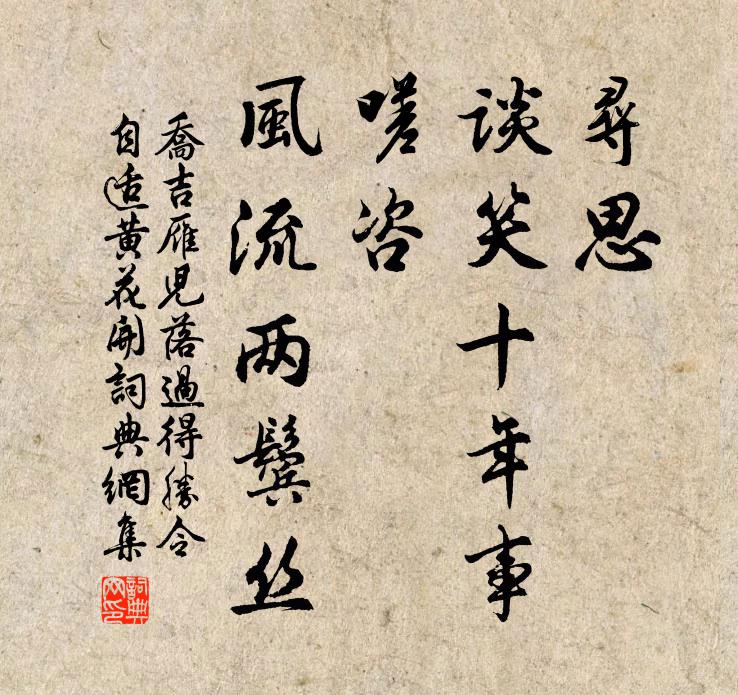 尋思
談笑十年事
嗟咨
風流两鬓丝
喬吉雁児落過得勝令
自适黄花開詞典網集
詞典
网印